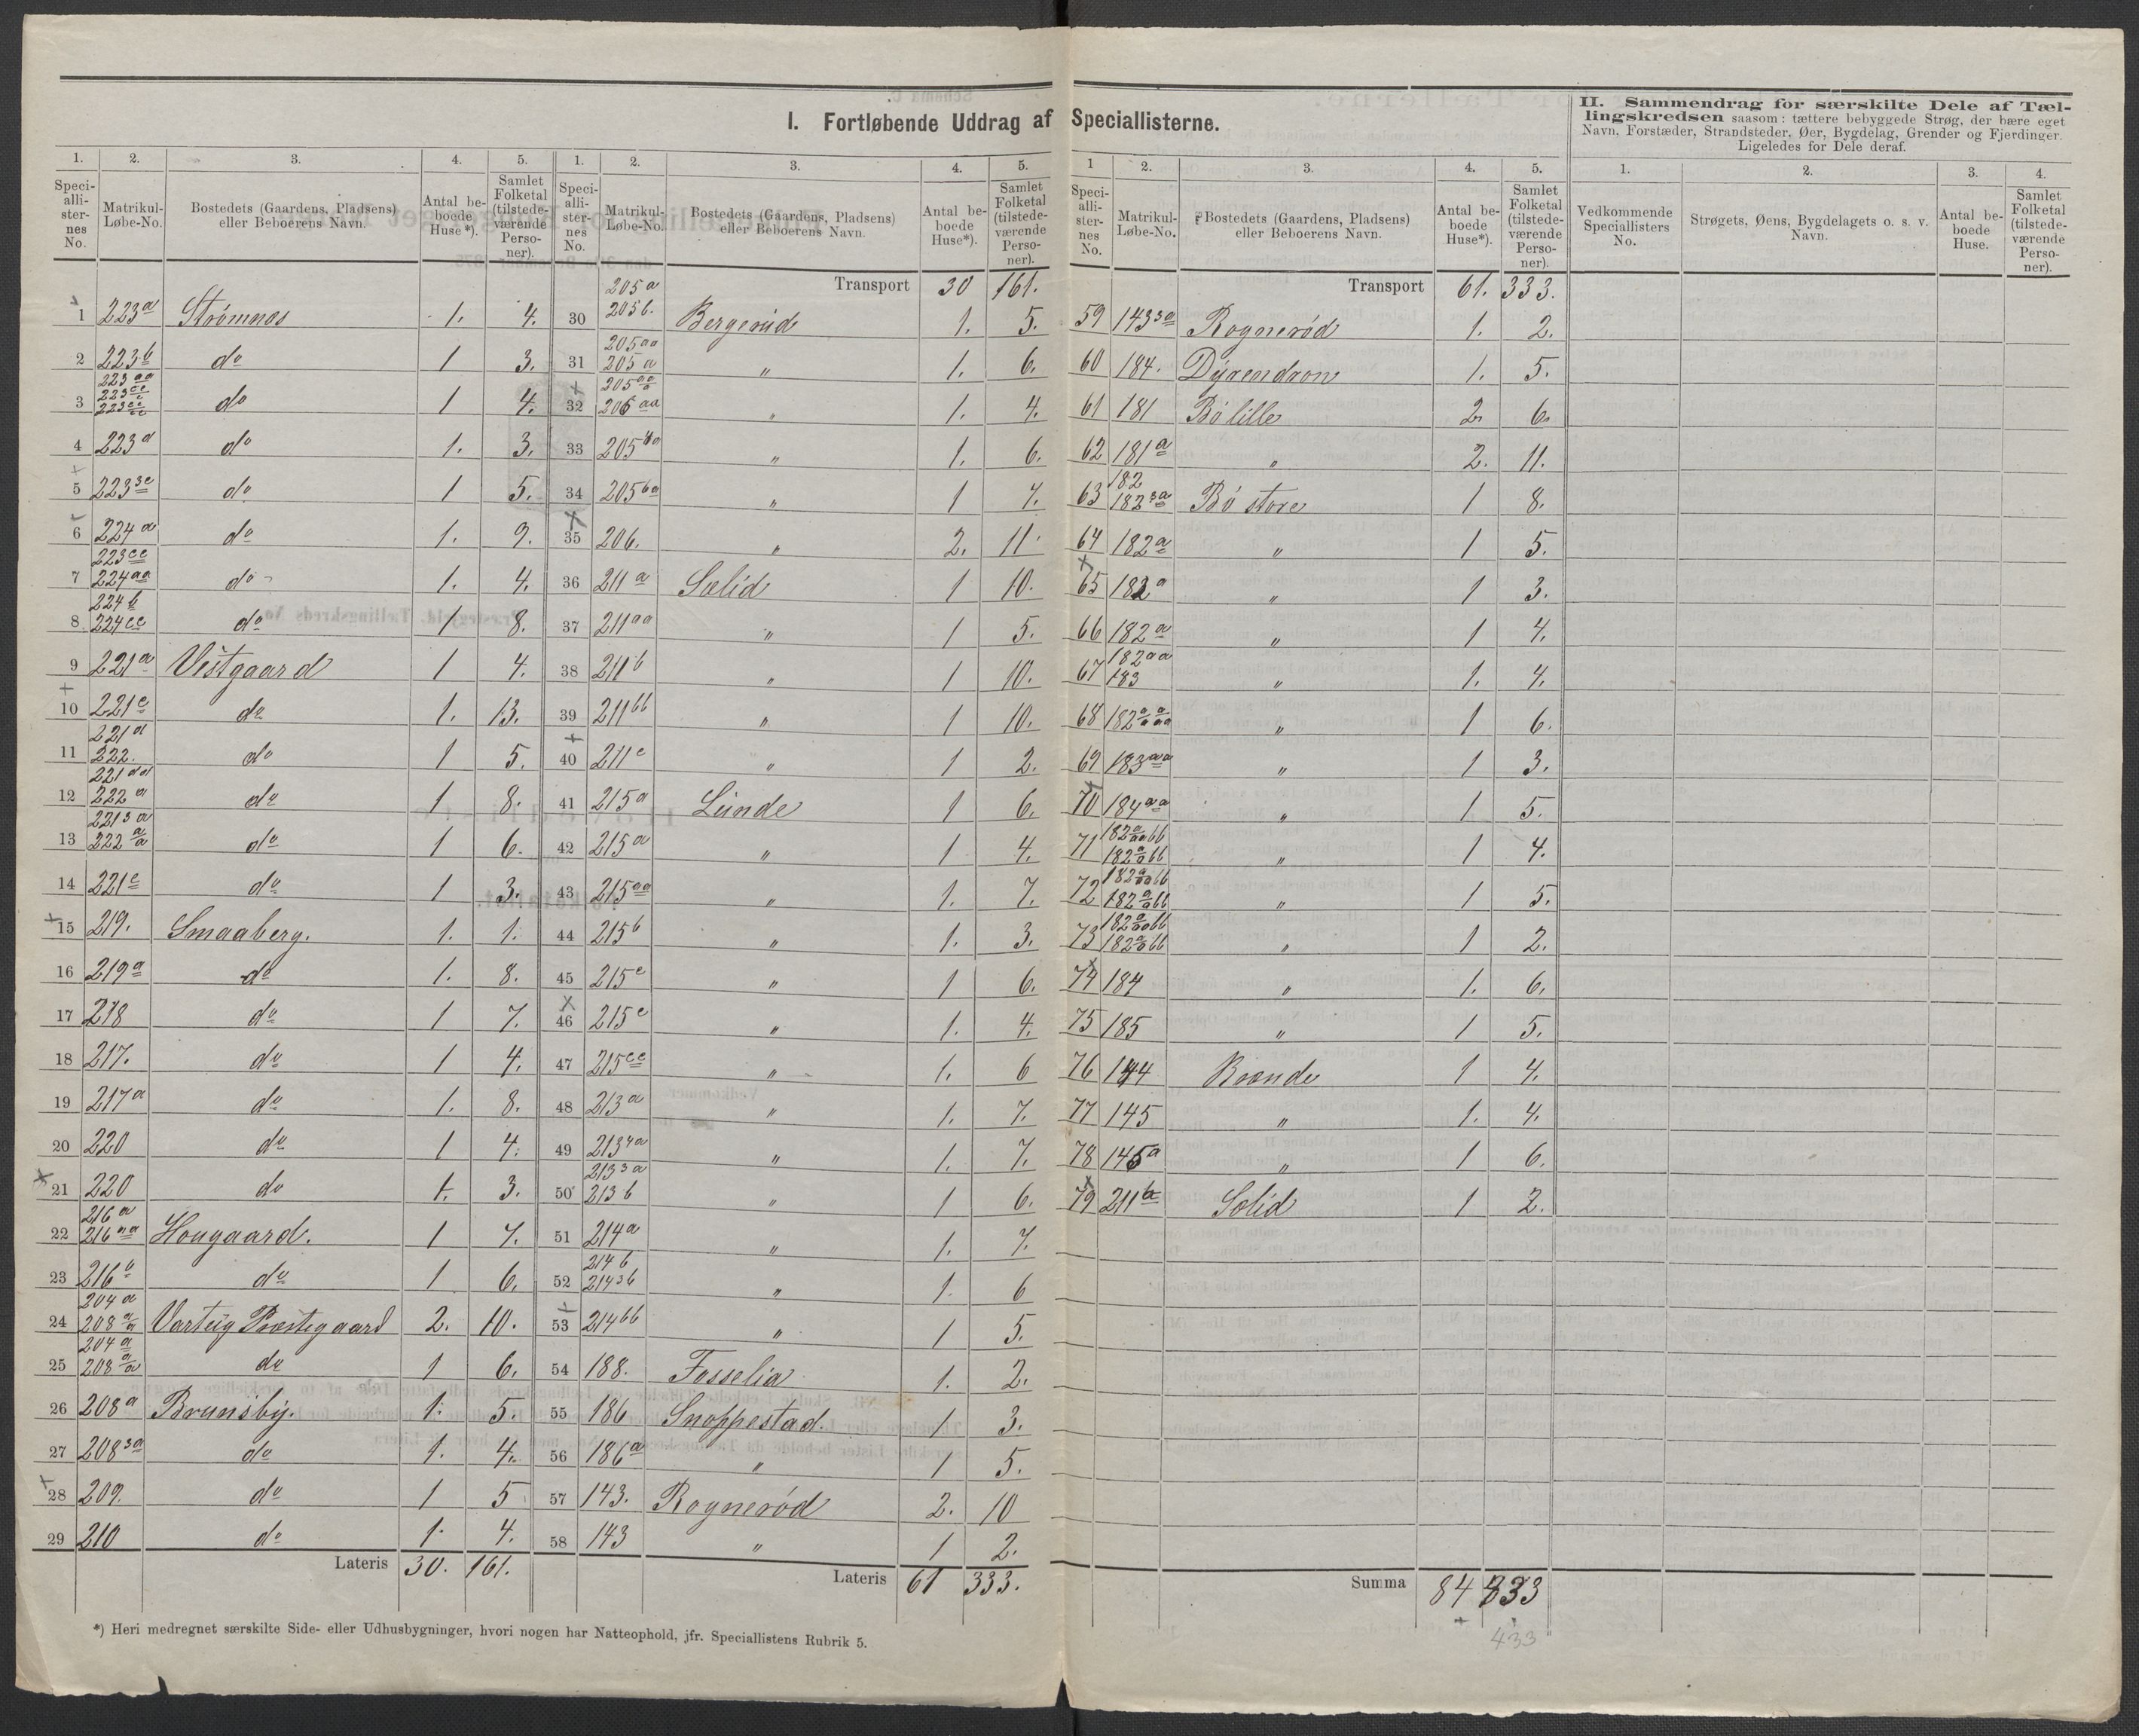 I. Fortløbende Uddrag af Speciallisterne.
1. 2. 3. 4. 5.
Speciallisternes No. Matrikul-Løbe-No. Bostedets (Gaardens, Pladsens) eller Beboerens Navn. Antal beboede Huse*). Samlet Folketal (tilstedeværende Personer).
1 223a Strømnes 1. 4.
2 223b do 1 3.
3 223aa 223cc 223cc do 1 4.
4 223d do 1. 3.
5 223 3c do 1 5.
6 224a do 1. 9.
7 223cc 224aa do 1. 4.
8 224b 224cc do 1 8.
9 221a Vestgaard 1 4.
10 221c do 1. 13.
11 221d 222. do 1 5.
12 221dd 222a do 1 8.
13 221 3a 222 a/a do 1 6.
14 221e do 1 3.
15 219. Smaaberg. 1. 1.
16 219a do 1. 8.
17 218 do 1 7.
18 217. do 1 4.
19 217a do 1. 8.
20 220 do 1 4.
21 220 do 1. 3.
22 216a 216aa Hougaard. 1 7.
23 216b do 1 6.
24 204a 208 a/a Varteig Præstegaard 2. 10.
25 204a 208 a/a do 1 6.
26 208a Brunsby. 1. 5.
27 208 3a do 1. 4.
28 209. do 1 5
29 210 do 1. 4.
Lateris 30. 161.
*) Heri medregnet særskilte Side- eller Udhusbygninger, hvori nogen har Natteophold, jfr. Speciallistens Rubrik 5.
1. 2. 3. 4. 5.
Speciallisternes No. Matrikul-Løbe-No. Bostedets (Gaardens, Pladsens) eller Beboerens Navn. Antal beboede Huse*). Samlet Folketal (tilstedeværende Personer).
Transport 30 161.
30 205a 205b. Bergerud 1. 5.
31 205aa 205a " 1. 6.
32 205 aa 206aa " 1. 4.
33 205 4a " 1. 6.
34 205 6a " 1 7.
35 206. " 2. 11.
36 211a Solid 1 10.
37 211aa " 1 5.
38 211b " 1 10.
39 211bb " 1 10.
40 211c " 1 2.
41 215a Lunde 1 6.
42 215a " 1 4.
43 215aa " 1. 7.
44 215b " 1. 3.
45 215c " 1 6.
46 215c " 1. 4.
47 215cc " 1. 6
48 213a " 1. 7.
49 213 4a " 1. 7.
50 213 3a 213b " 1 6.
51 214a " 1. 7.
52 214b 214 3b " 1. 6
53 214bb " 1 5.
54 188. Fosselia 1. 2.
55 186 Snoppestad. 1 3.
56 186a " 1 5.
57 143. Rognerød 2. 10
58 143 " 1 2.
Lateris 61 333.
1 2. 3. 4. 5.
Speciallisternes No. Matrikul-Løbe-No. Bostedets (Gaardens, Pladsens) eller Beboerens Navn. Antal beboede Huse*). Samlet Folketal (tilstedeværende Personer).
Transport 61. 333.
59 143 3a Rognerød 1. 2.
60 184. Dyrendron 1. 5.
61 181 Bø lille 2. 6.
62 181a " 2. 11.
63 182 182 3a Bø store 1 8.
64 182a " 1 5.
65 182a " 1 3.
66 182a " 1 4.
67 182aa 183 " 1. 4.
68 182 a/a a/aa " 1 6.
69 183aa " 1 3.
70 184aa " 1 5.
71 182 a/aa bb 182 a/a bb " 1 4.
72 182 a/aa bb 182 a/a bb " 1 5.
73 182 a/aa bb 182 a/a bb " 1 2.
74 184 " 1. 6.
75 185 " 1 5.
76 144 Brænde 1 4.
77 145 " 1. 4.
78 145a " 1 6.
79 211b Solid 1 2.
Summa 84 333
433
II. Sammendrag for særskilte Dele af Tællingskredsen saasom: tættere bebyggede Strøg, der bære eget
Navn, Forstæder, Strandsteder, Øer, Bygdelag, Grender og Fjerdinger.
Ligeledes for Dele deraf.
1. 2. 3. 4.
Vedkommende Speciallisters No. Strøgets, Øens, Bygdelagets o. s. v. Navn. Antal beboede Huse. Samlet Folketal (tilstedeværende Personer).